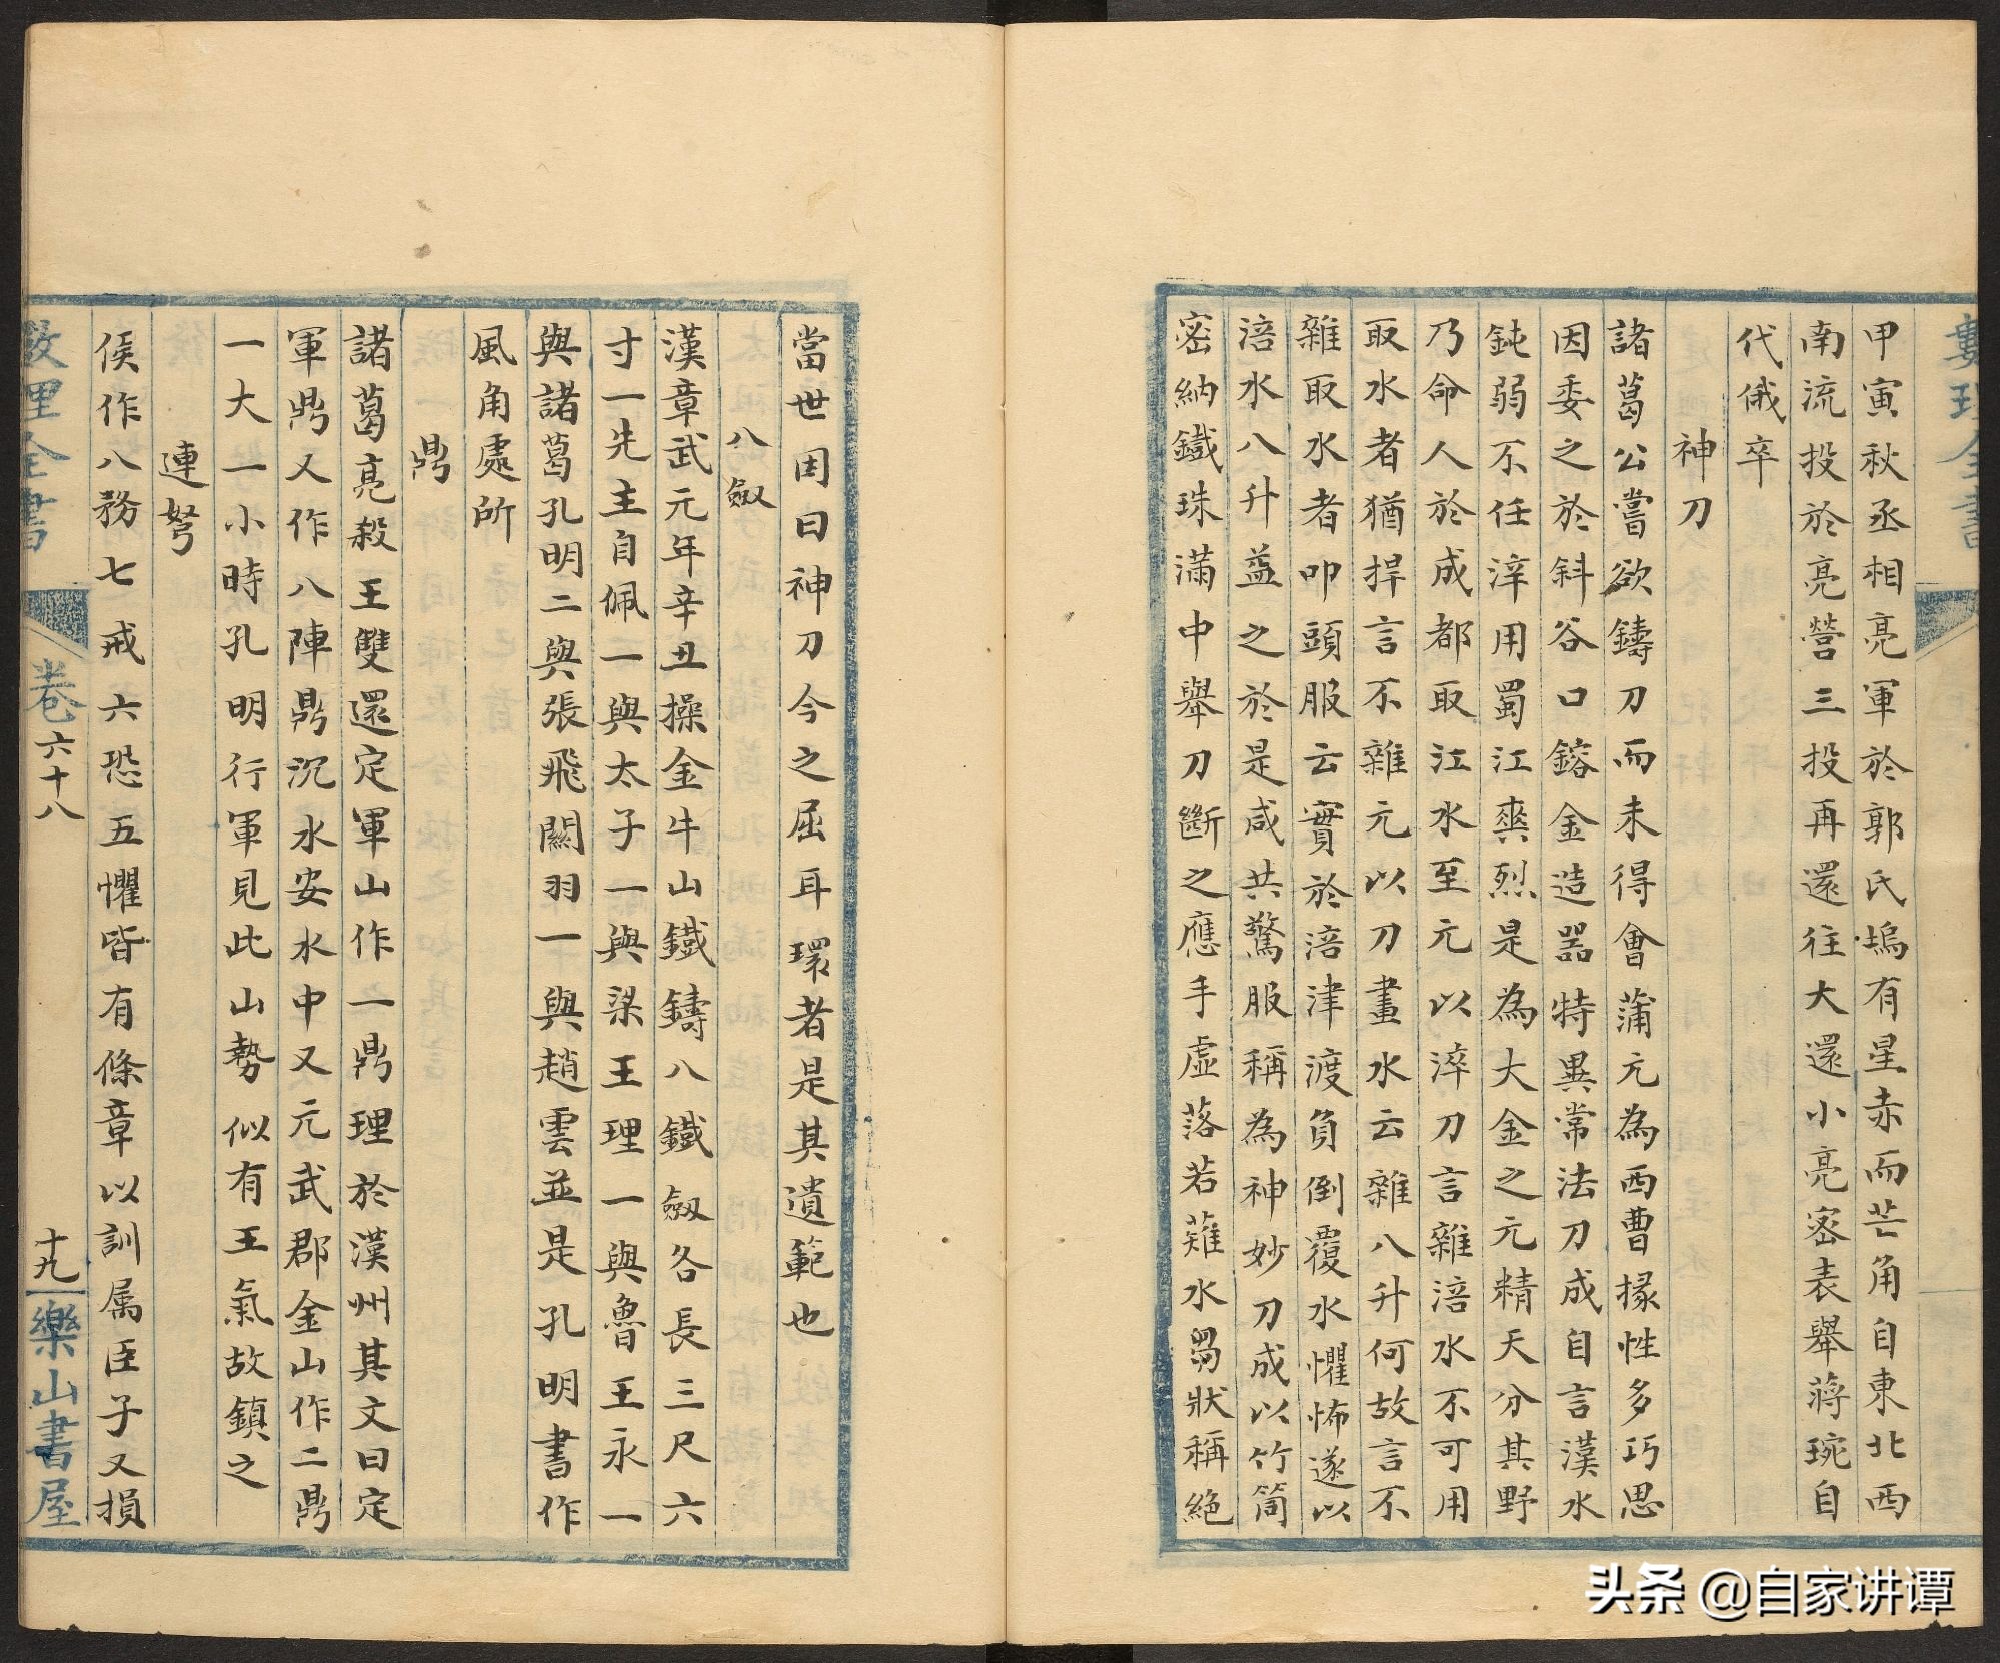 甲寅秋丞相亮軍於郭氏塢有星赤而芒角自東北西
南流投於亮營三投再還往大還小亮密表舉蔣琬自
代俄卒
神刀
諸葛公嘗欲鑄刀而未得會蒲元為西曹掾性多巧思
因委之於斜谷口鎔金造器特異常法刀成自言漢水
鈍弱不任淬用蜀江爽烈是為大金之元精天分其野
乃命人於成都取江水至元以淬刀言雜涪水不可用
取水者猶捍言不雜元以刀畫水云雜八升何故言不
雜取水者叩頭服云實於涪津渡負倒覆水懼怖遂以
涪水八升益之於是咸共驚服稱為神妙刀成以竹筒
密納鐵珠滿中舉刀斷之應手虛落若薙水芻狀稱絕
當世因曰神刀今之屈耳環者是其遺範也
八劔
漢章武元年辛丑操金牛山鐵鑄八鐵劔各長三尺六
寸一先主自佩一與太子一與梁王理一與魯王永一
與諸葛孔明二與張飛關羽一與趙雲並是孔明書作
風角處所
鼎
諸葛亮殺王雙還定軍山作一鼎理於漢州其文曰定
軍鼎又作八陣鼎沉水安水中又元武郡金山作二鼎
一大一小時孔明行軍見此山勢似有王氣故鎮之
連弩
侯作八務七戒六恐五懼皆有條章以訓属臣子又損
數理全書 卷六十八 十九 樂山書屋
头条 @自家讲谭